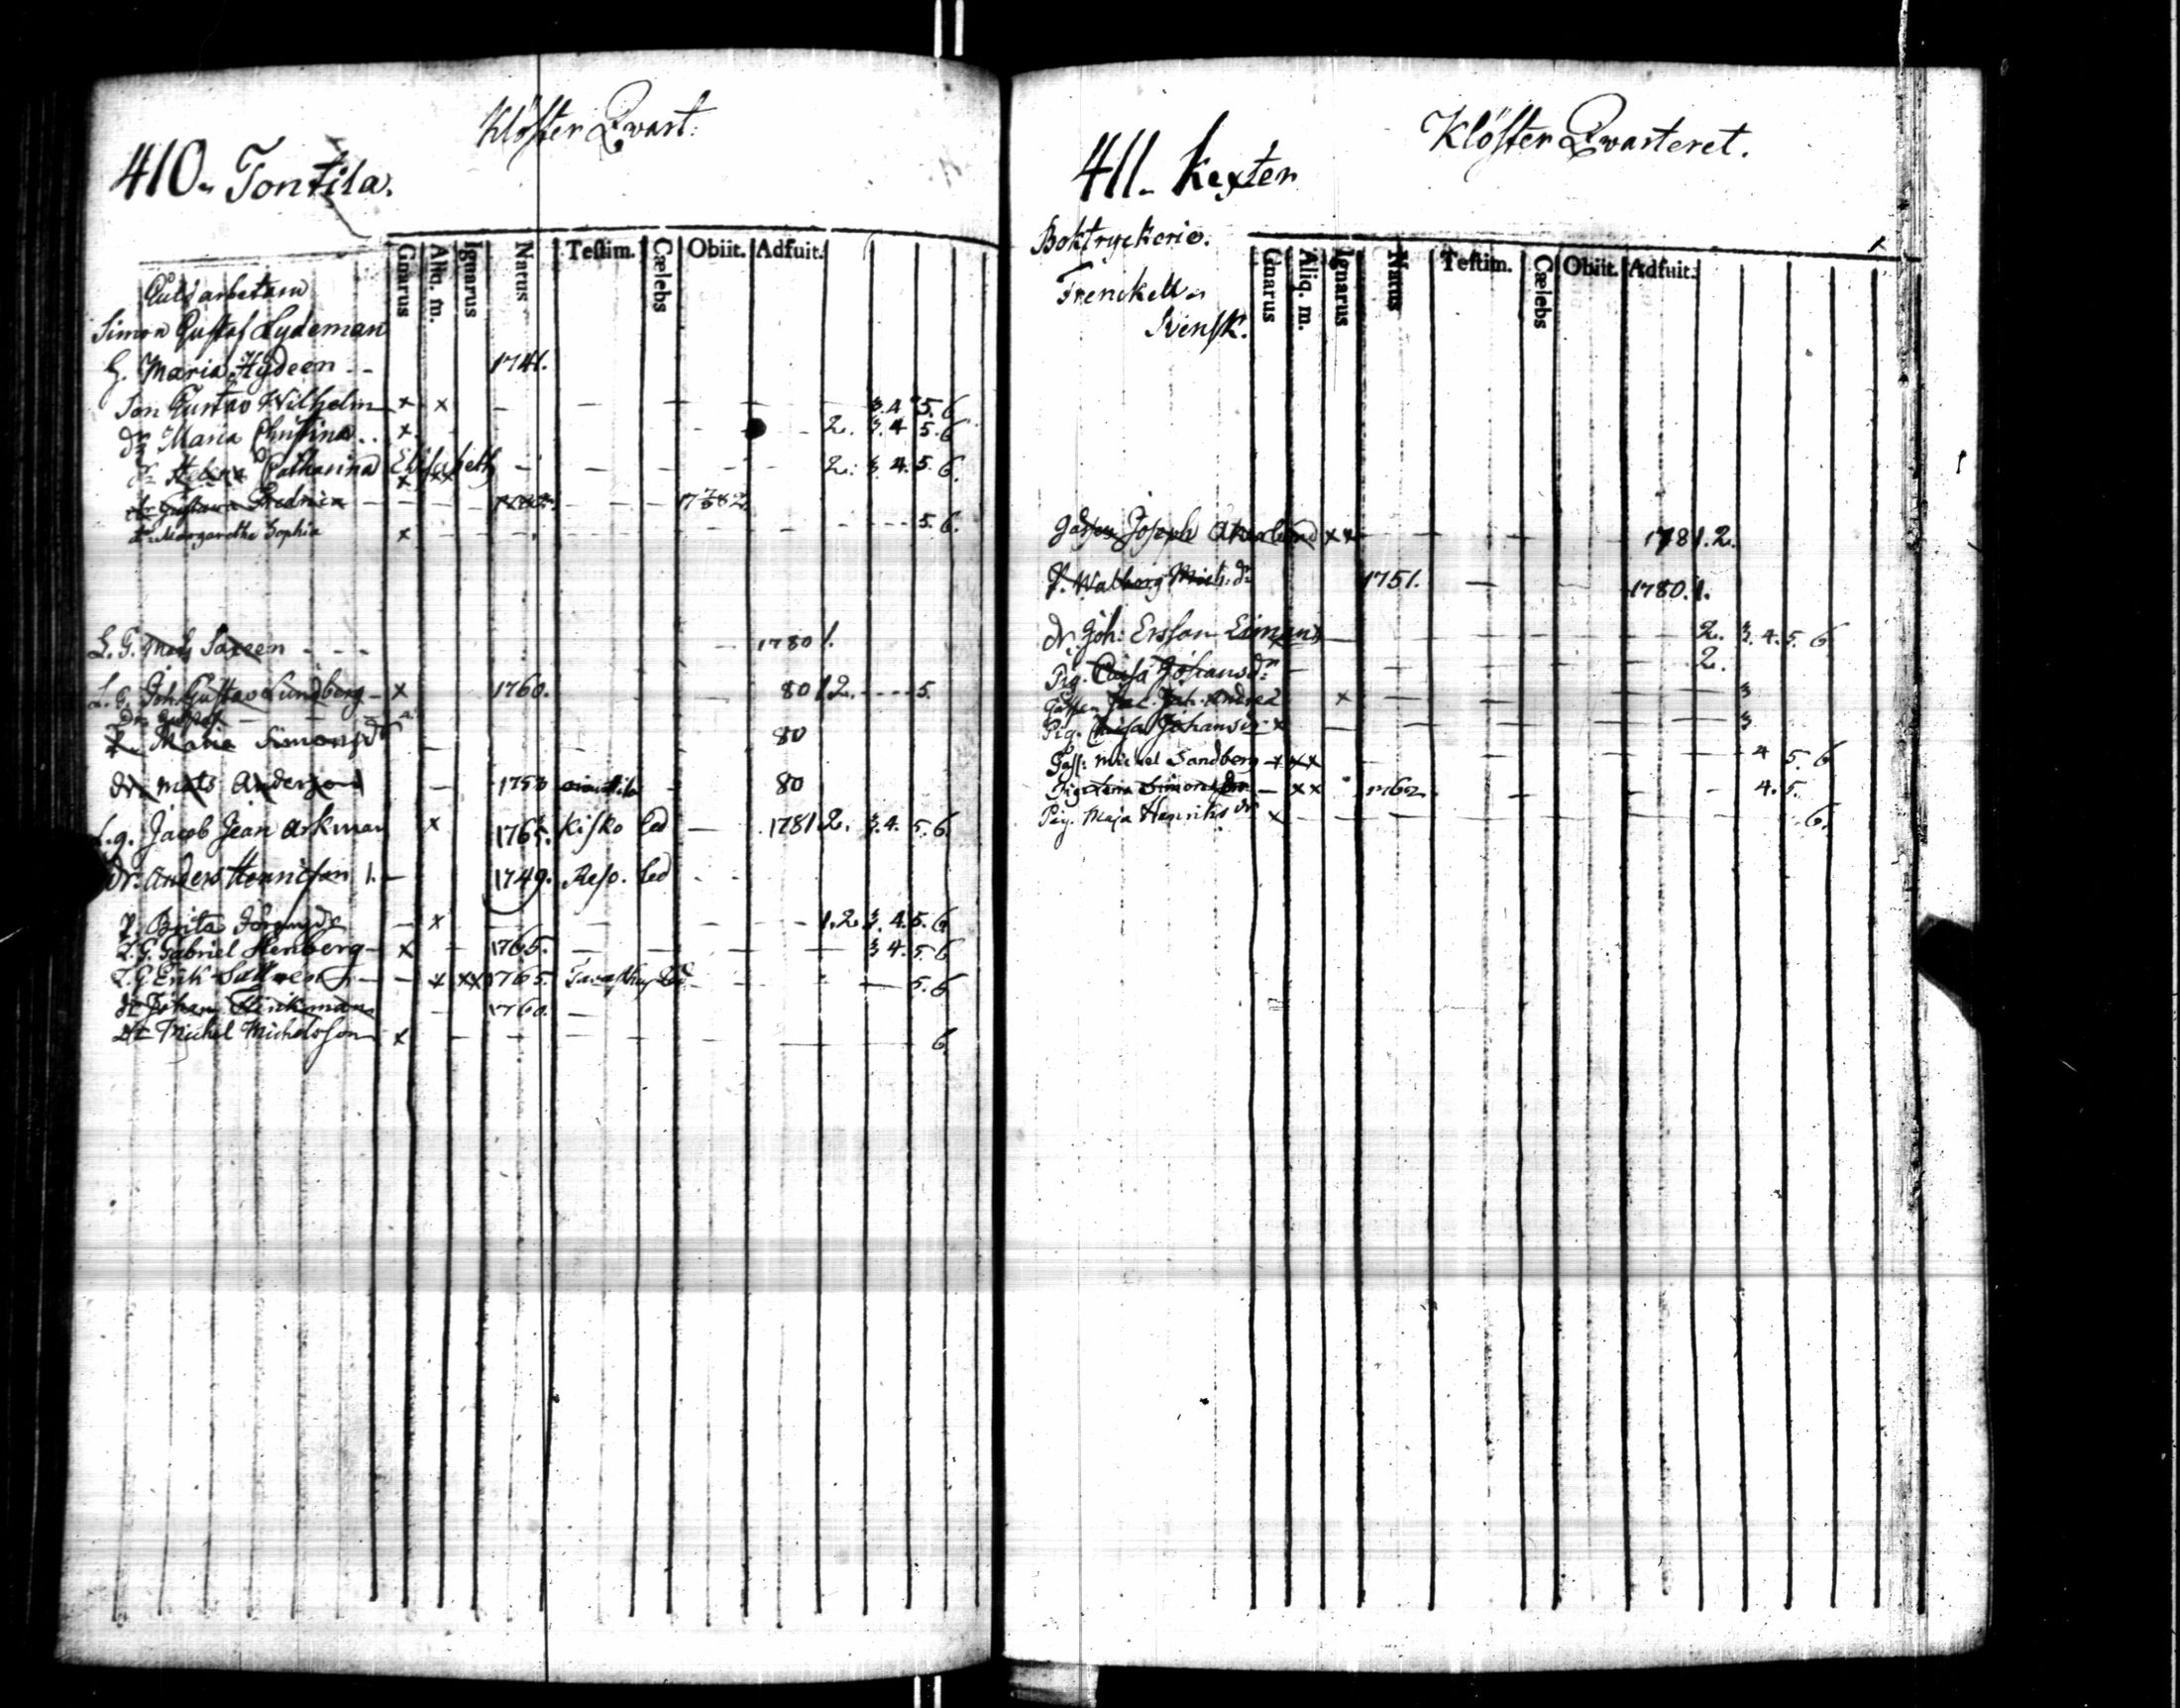 Klöster Qwart:
410. Tontila.
Gnarus Aliq. m. Ignarus Natus Testim. Cælebs Obiit. Adfuit.
Guldarbetaren
Simon Gustaf Lydeman
H. Maria Hydeen - - 1741.
Son Gustav Wilhelm x x - - - - 3.4 5.6
dr Maria Christina .. x - - - 2. 3.4 5.6
dr Helena Catharina Elisabeth x xx - - - - 2. 3.4.5.6.
dr Gustava Fredrica - - - - 1782
dr Margaretha Sophia x - - - - - 5.6.
L.G. Mats Saxeen - - - - 1780 1.
L.G. Joh. Gustav Lundberg - x 1760. - 80 1 2. - - - - 5.
Dr. Gustaf
P. Maria Simonsdr - - 80
dr. Mats Anderson - 1753 - 80
L.g. Jacob Jean Arkman x 1765. Kisko led - 1781.2. 3.4. 5.6.
dr. Anders Hennicson 1. - 1749. Reso. led - -
P. Brita - x - - - - - 1.2. 3.4.5.6
L.G. Gabriel Stenberg - x - 1765. - - - - 3 4. 5.6
L.G. Erik - x xx 1765. - - - - 5.6
dr Johan - 1760. -
dr Michel Michelsson x - - - - - 6.
Klöster Qwarteret.
411. Kexten
Boktryckerie.
Frenckell
Svensk.
Gnarus Aliq. m. Ignarus Natus Testim. Cælebs Obiit. Adfuit.
Joseph Åkerlund xx - - - - 1781.2.
P. Walborg Mich. dr 1751. - - 1780.1.
dr. Joh: Ersson Eiman - - - - - 2. 3.4.5.6
Pig. Caisa Johansdr - - - - - 2.
x - - - - 3
Pig. Caisa Johansdr x - - - - 3
Gess: Michel Sandberg - x xx - - - - - 4 5.6
Pig. Lena Simonsdr - xx 1762. - - - 4.5.
Pig. Maja Henrichsdr x - - - - - - 6.